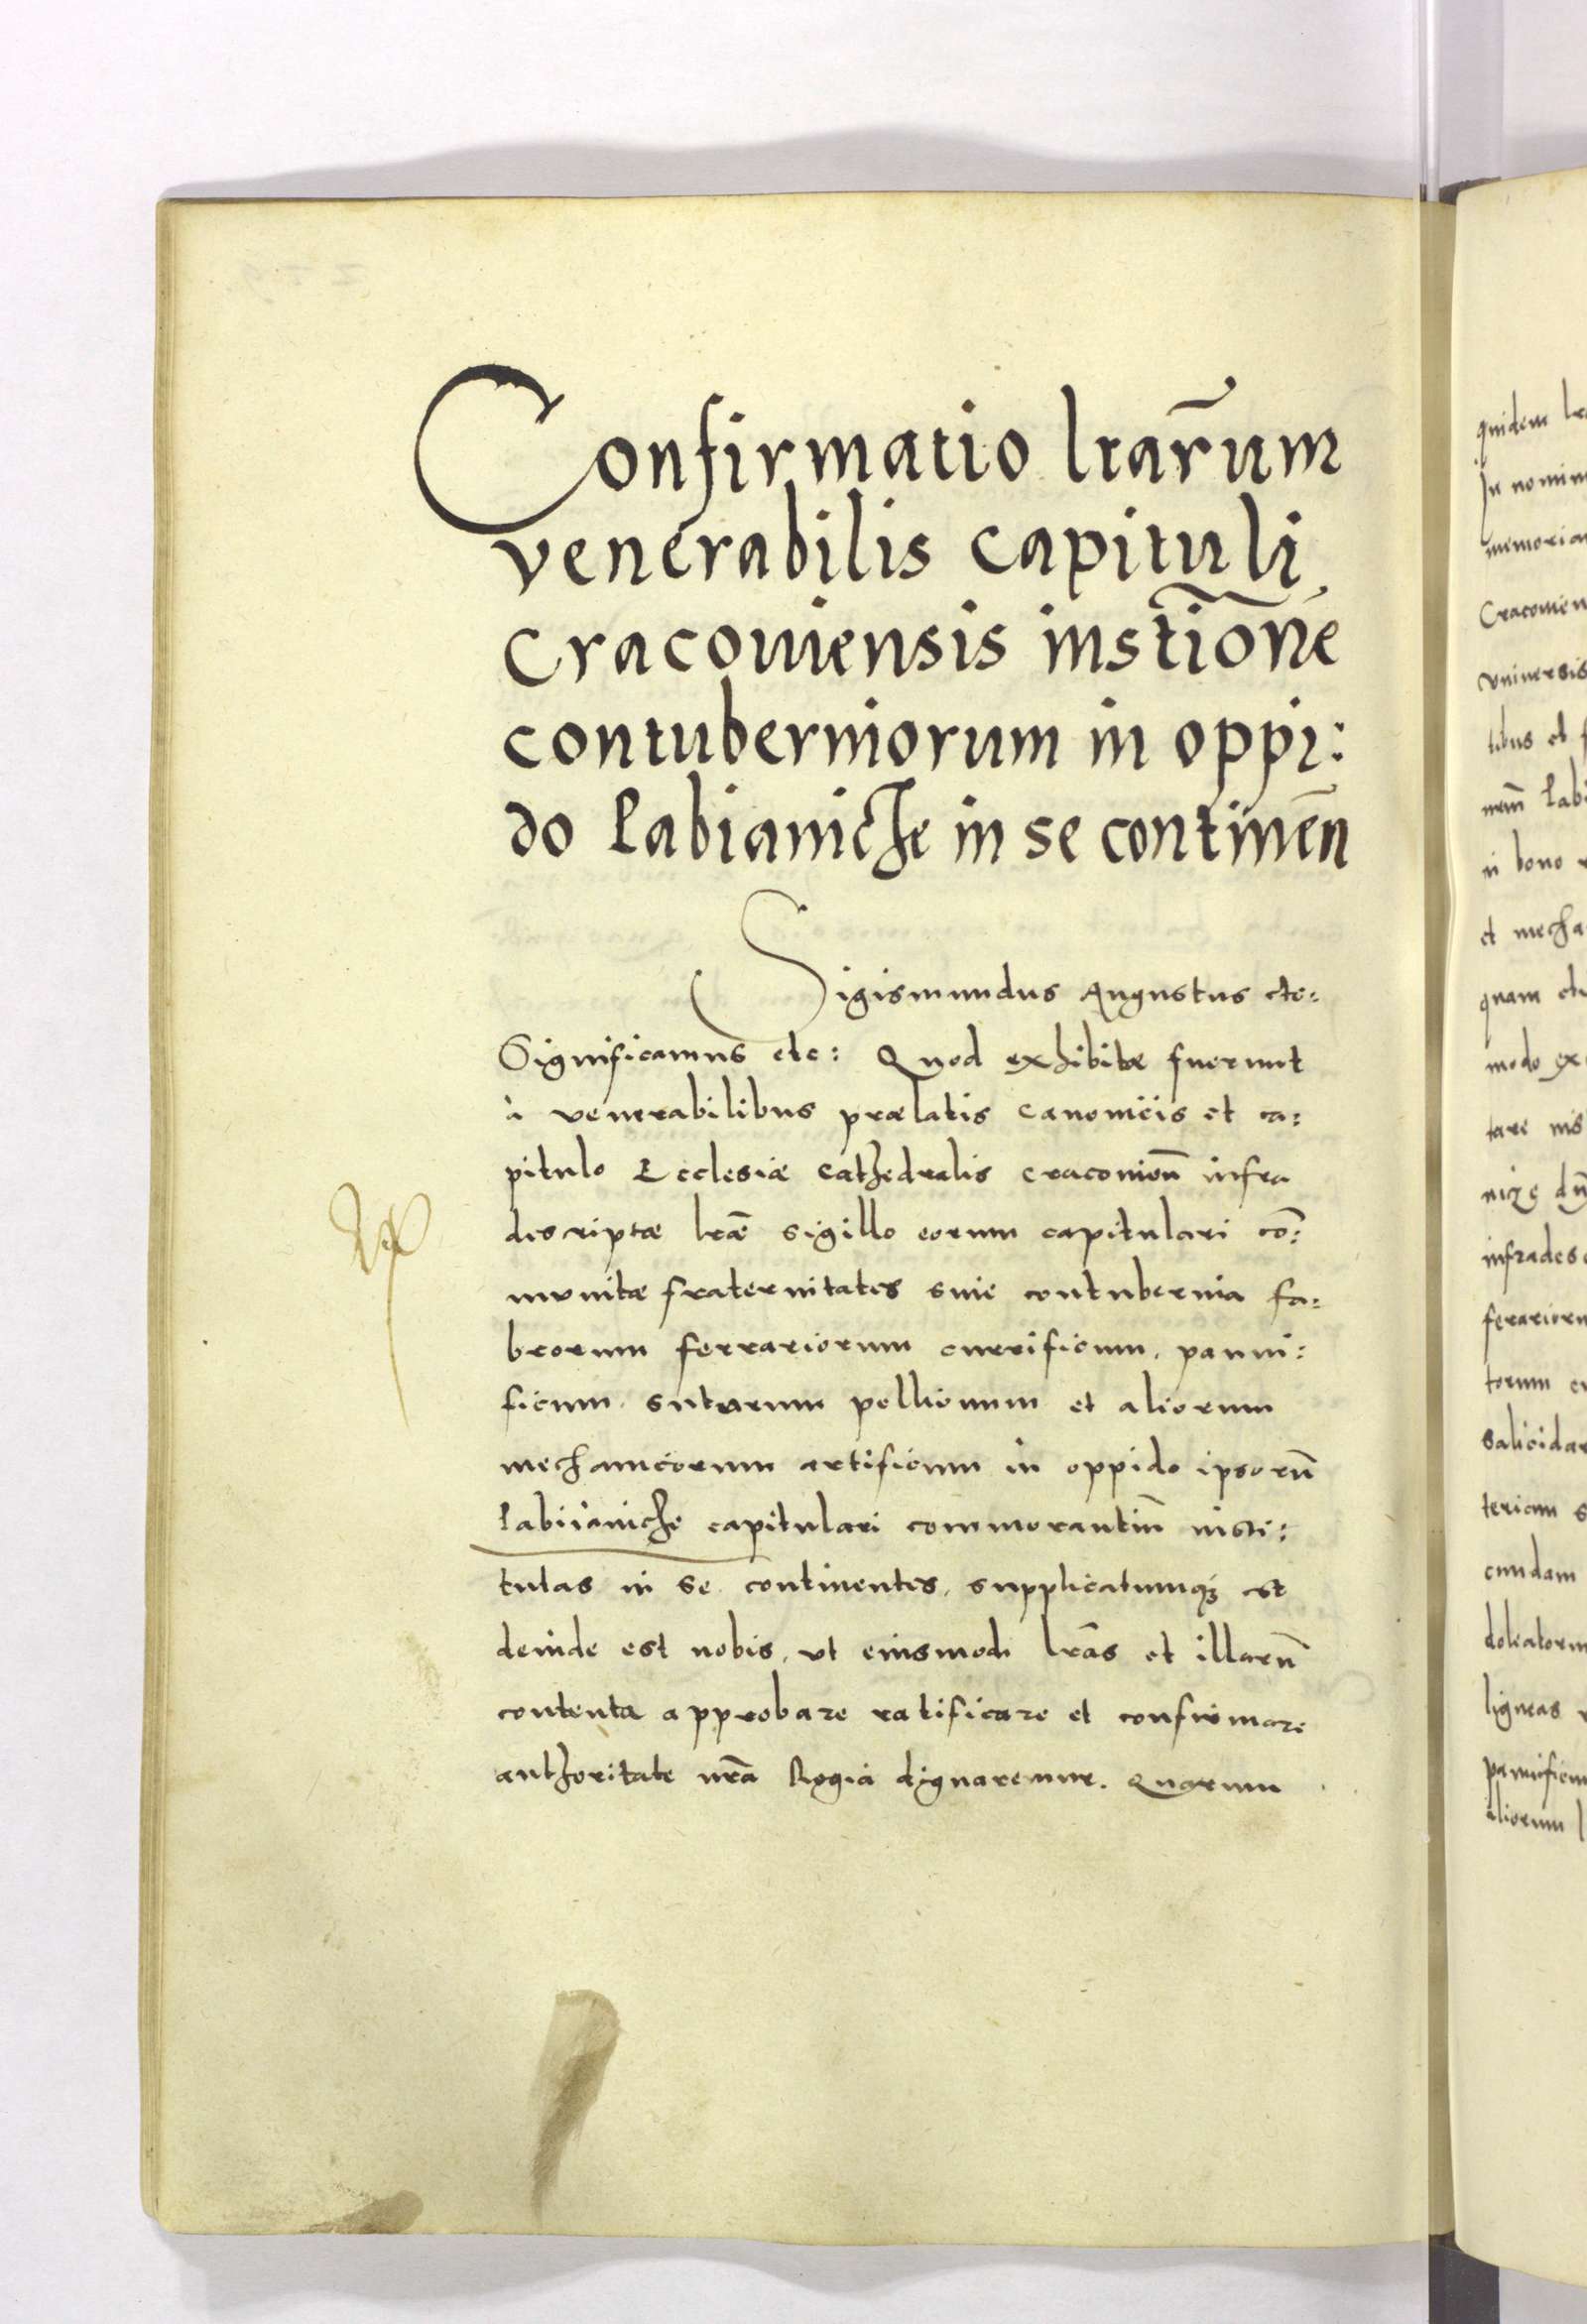 Confirmatio lrarum
venerabilis capituli
Cracouiensis instione
contuberniorum in oppi:
do Pabianiche in se continen
Sigismundus Augustus etc:
Significamus etc: Quod exhibitæ fuerunt
à venerabilibus prælatis Canonicis et ca:
pitulo Ecclesiæ Cathedralis Cracouien̄ infra
descriptæ lræ sigillo eorum capitulari co:
munitæ fraternitates siue contubernia fa:
brorum ferrariorum currificum, panni:
ficum, sutorum pellionum et aliorum
mechanicorum artificum in oppido ipsorū
Pabiianiche capitulari commorantiū insti:
tutas in se continentes, supplicatumq; est
deinde est nobis, vt eiusmodi lras et illarū
contenta approbare ratificare et confirmare
authoritate nrā Regia dignaremur. Quarum
quidem
In nomin
memoria
Cracouien
vniuersis
tibus et
in bono
et mecha
quam
modo ex
infrades
torum
cundam
ligneas
aliorum